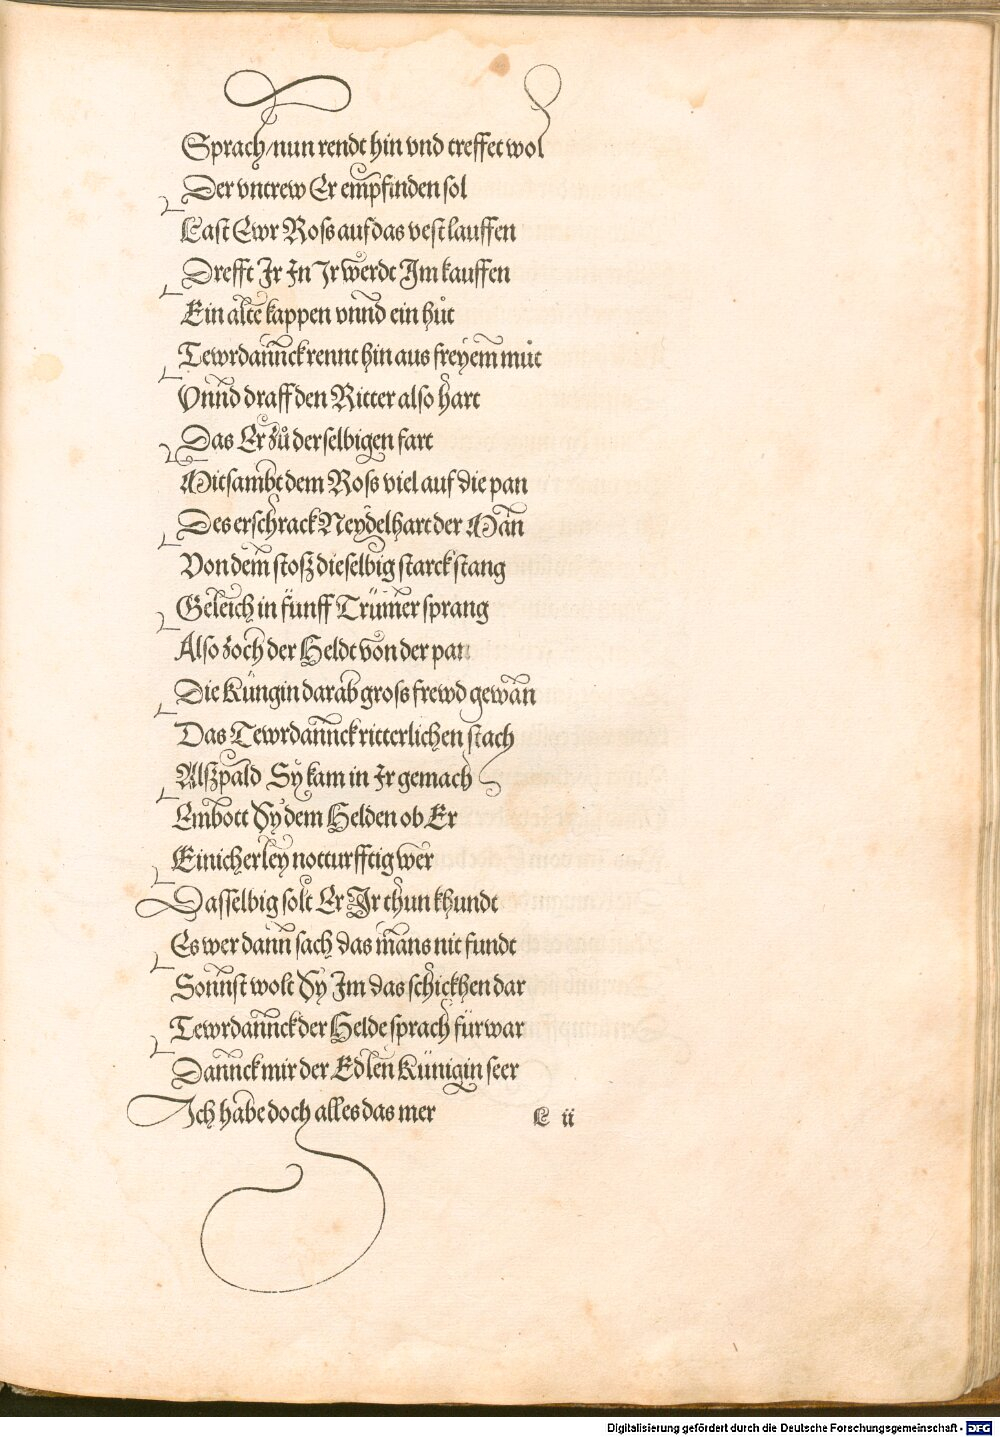 Sprach/nun rendt hin vnd treffet wol
Der vntrew Er empfinden sol
Last Ewr Ross auf das vest lauffen
Drefft Ir In Ir werdt Im kauffen
Ein alte kappen vnnd ein hůt
Tewrdannck rennt hin aus freyem můt
Vnnd draff den Ritter also hart
Das Er zů derselbigen fart
Mitsambt dem Ross viel auf die pan
Des erschrack Neydelhart der Man
Von dem stoß dieselbig starck stang
Geleich in fünff Trümer sprang
Also zoch der Heldt von der pan
Die Küngin darab gross frewd gewan
Das Tewrdannck ritterlichen stach
Alßpald Sy kam in Ir gemach
Embott Sy dem Helden ob Er
Einicherley notturfftig wer
Dasselbig solt Er Ir thun khundt
Es wer dann sach das mans nit fundt
Sonnst wolt Sy Im das schickhen dar
Tewrdannck der Helde sprach fürwar
Dannck mir der Edlen Künigin seer
Ich habe doch alles das mer
L ii
Digitalisierung gefördert durch die Deutsche Forschungsgemeinschaft - DFG